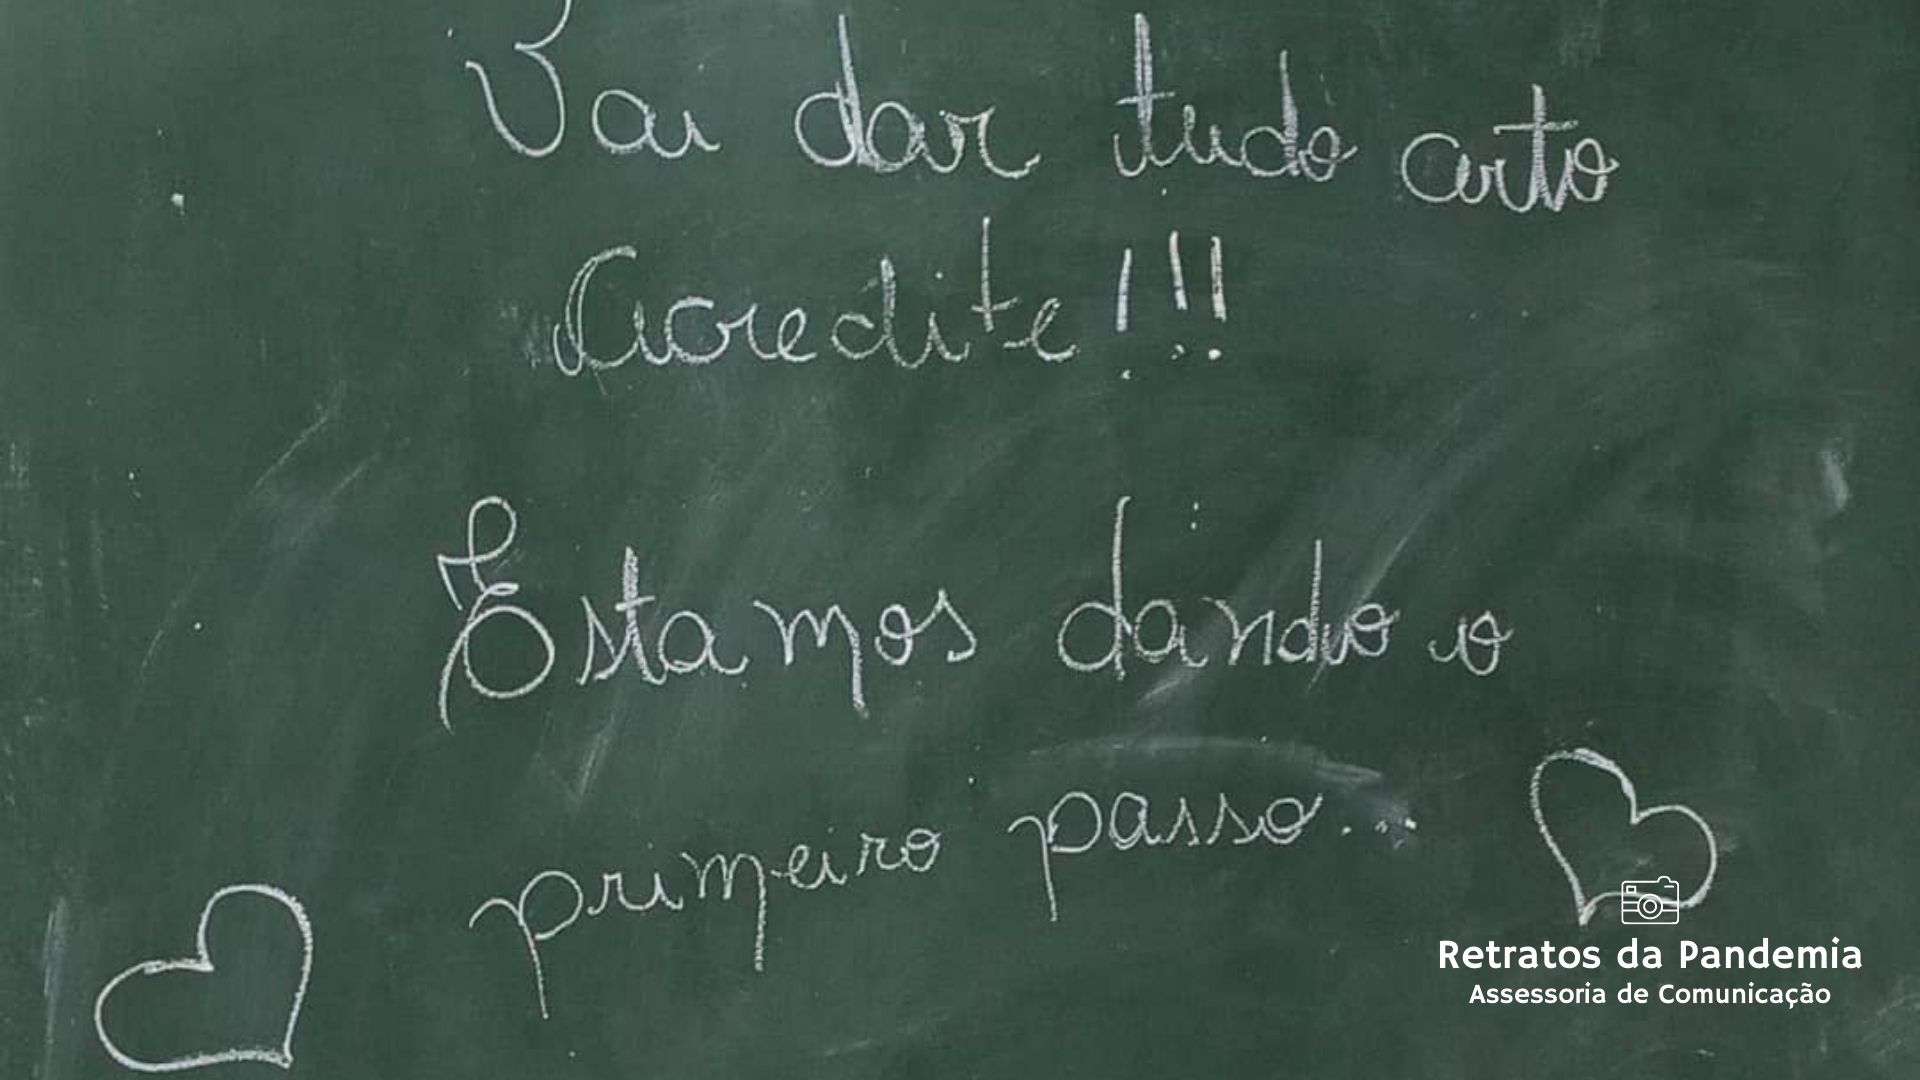 Vai dar tudo certo
Acredite!!!
Estamos dando o
primeiro passo...
Retratos da Pandemia
Assessoria de Comunicação